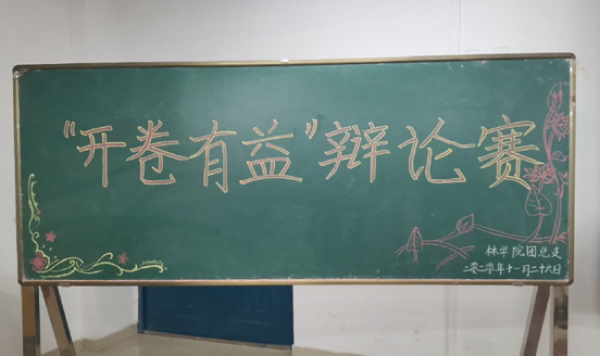 “开卷有益”辩论赛
林学院团总支
二零二零年十一月二十六日